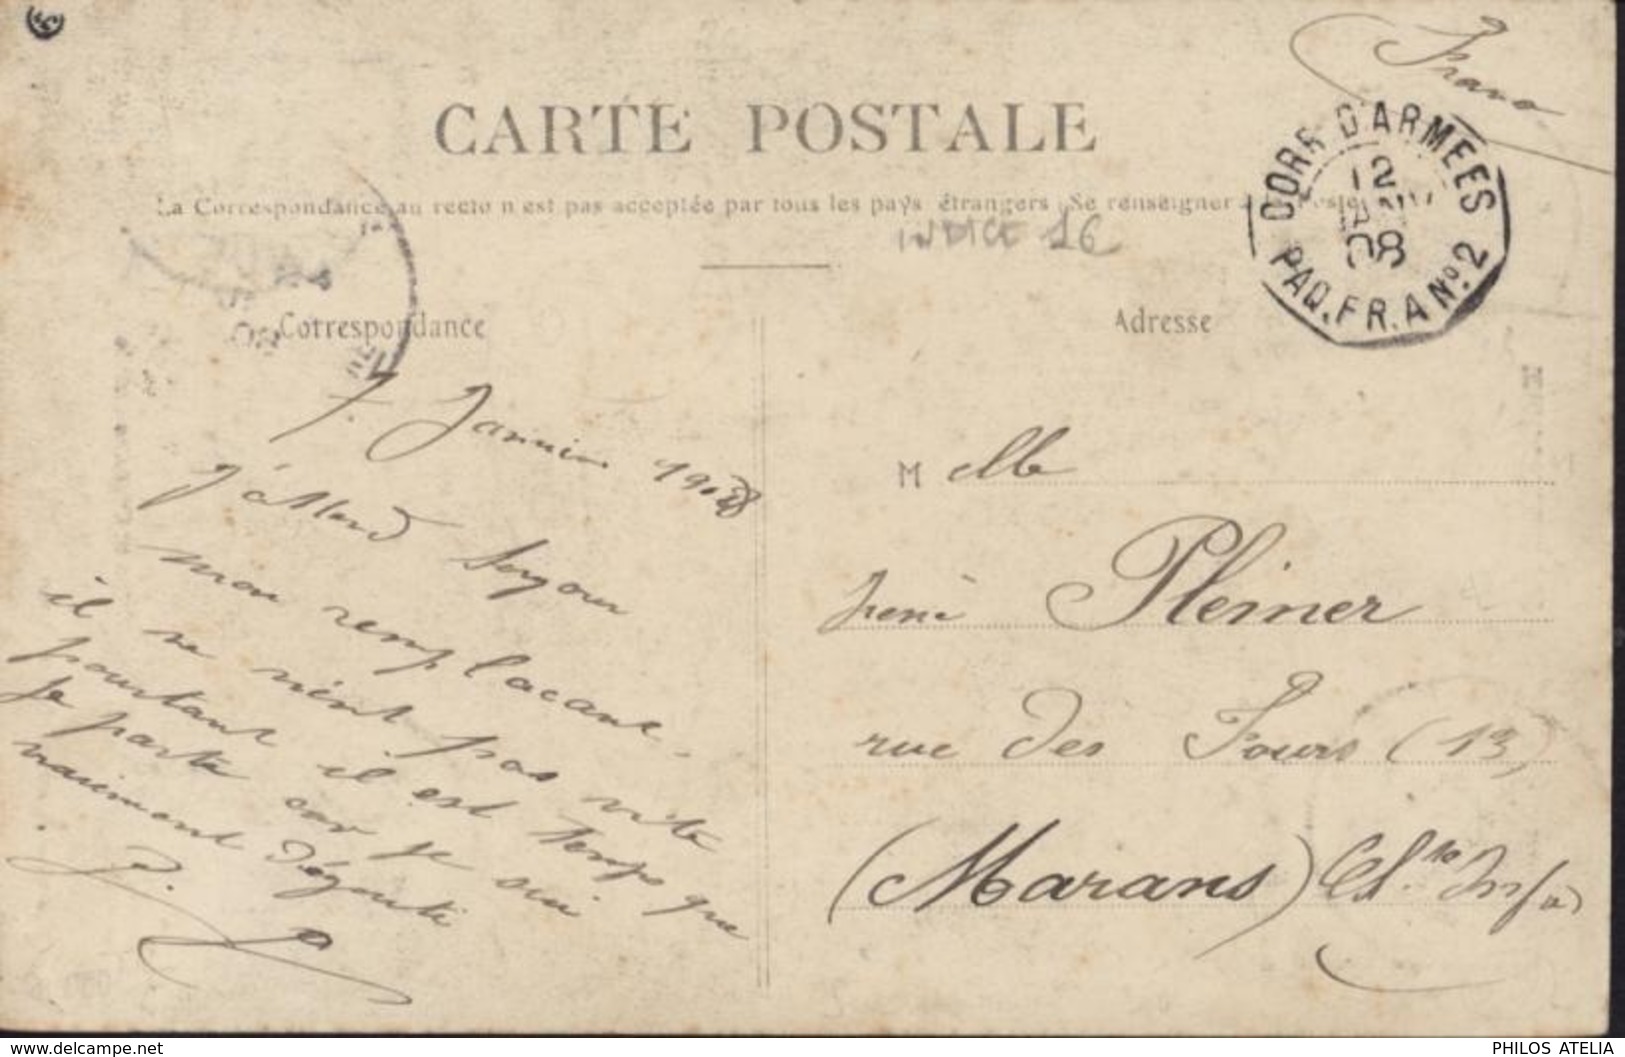 Franc
CARTE POSTALE
La Correspondance au recto n'est pas acceptée par tous les pays étrangers (Se renseigner à la Poste
INDICE 16
CORR D'ARMEES
12
JANV
08
PAQ. FR. A N°. 2
Correspondance
Adresse
7. Janvier 1908
J'attend toujour
mon remplacant.
il ne vient pas vite
pourtant il est temps que
je parte car je sui
vraiment dégouté
M elle
Pleiner
rue des Fours (13)
(Marans) Ch.te Infre
delcampe.net
PHILOS ATELIA